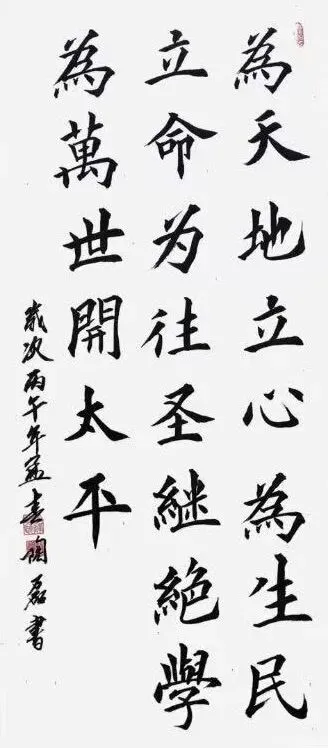 為天地立心為生民
立命为往圣継絶學
為萬世開太平
歲次丙午年孟春陶磊書